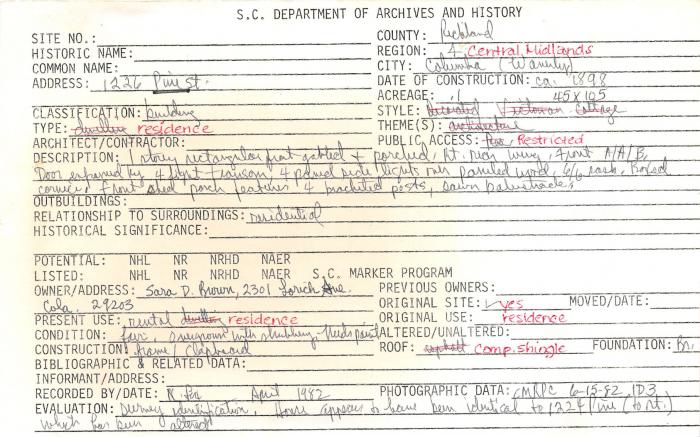 S.C. DEPARTMENT OF ARCHIVES AND HISTORY
SITE NO.: COUNTY: Richland
HISTORIC NAME: REGION: 4 Central Midlands
COMMON NAME: CITY: Columbia (Waverly)
ADDRESS: 1226 Pine St. DATE OF CONSTRUCTION: ca. 1898
ACREAGE: .1 45 x 105
CLASSIFICATION: building STYLE: Victorian Cottage
TYPE: dwelling residence THEME(S): architecture
ARCHITECT/CONTRACTOR: PUBLIC ACCESS: Restricted
DESCRIPTION: 1 story rectangular front gabled & porched, rt. rear wing, front A/A/B.
Door enframed by 4 light transom, 4 paned side lights over paneled wood, 6/6 sash, boxed
cornice, front shed porch features 4 bracketed posts, sawn balustrade.
OUTBUILDINGS:
RELATIONSHIP TO SURROUNDINGS: residential
HISTORICAL SIGNIFICANCE:
POTENTIAL: NHL NR NRHD NAER
LISTED: NHL NR NRHD NAER S.C. MARKER PROGRAM
OWNER/ADDRESS: Sara D. Brown, 2301 Lorick Ave. PREVIOUS OWNERS:
Cola. 29203 ORIGINAL SITE: yes MOVED/DATE:
PRESENT USE: rental dwelling residence ORIGINAL USE: residence
CONDITION: fair, overgrown with shrubbery, needs paint ALTERED/UNALTERED:
CONSTRUCTION: frame/clapboard ROOF: asphalt Comp. Shingle FOUNDATION: Br.
BIBLIOGRAPHIC & RELATED DATA:
INFORMANT/ADDRESS:
RECORDED BY/DATE: April 1982 PHOTOGRAPHIC DATA: CMRPC 6-15-82, 1D3
EVALUATION: Survey identification. House appears to have been identical to 1224 Pine (to rt.)
which has been altered